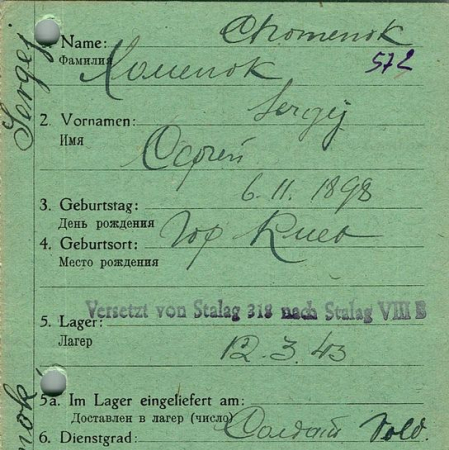 1. Name: Chomenok
Фамилия Хоменок
572
2. Vornamen: Sergej
Имя Сергей
3. Geburtstag: 6.11.1898
День рождения
4. Geburtsort: Гор Киев
Место рождения
Versetzt von Stalag 318 nach Stalag VIII B
5. Lager:
Лагер 12.3.43
5a. Im Lager eingeliefert am:
Доставлен в лагер (число)
6. Dienstgrad: Солдат Sold.
Sergej